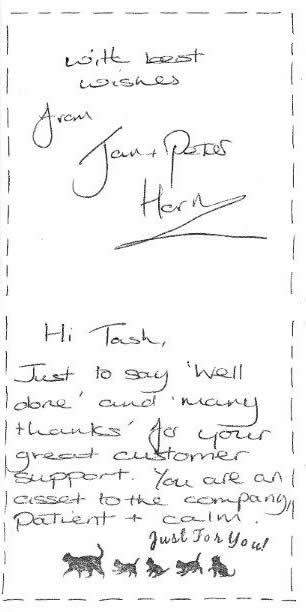 with best
wishes
from
Jan + Peter
Horn
Hi Tash,
Just to say 'Well
done' and 'many
thanks' for your
great customer
support. You are an
asset to the company,
patient + calm.
Just For You!